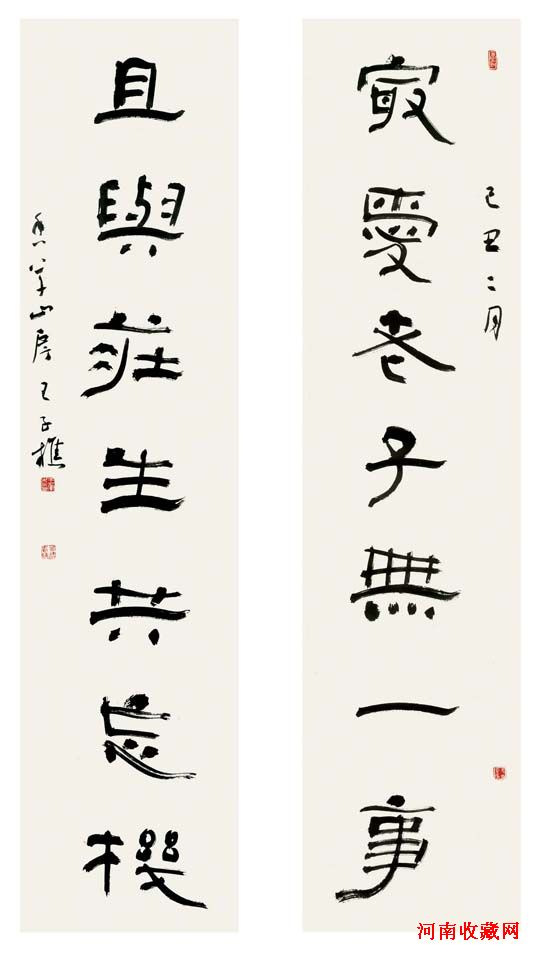 己丑二月
㝡愛老子無一事
且與莊生共忘機
香草山房王子樵
河南收藏网